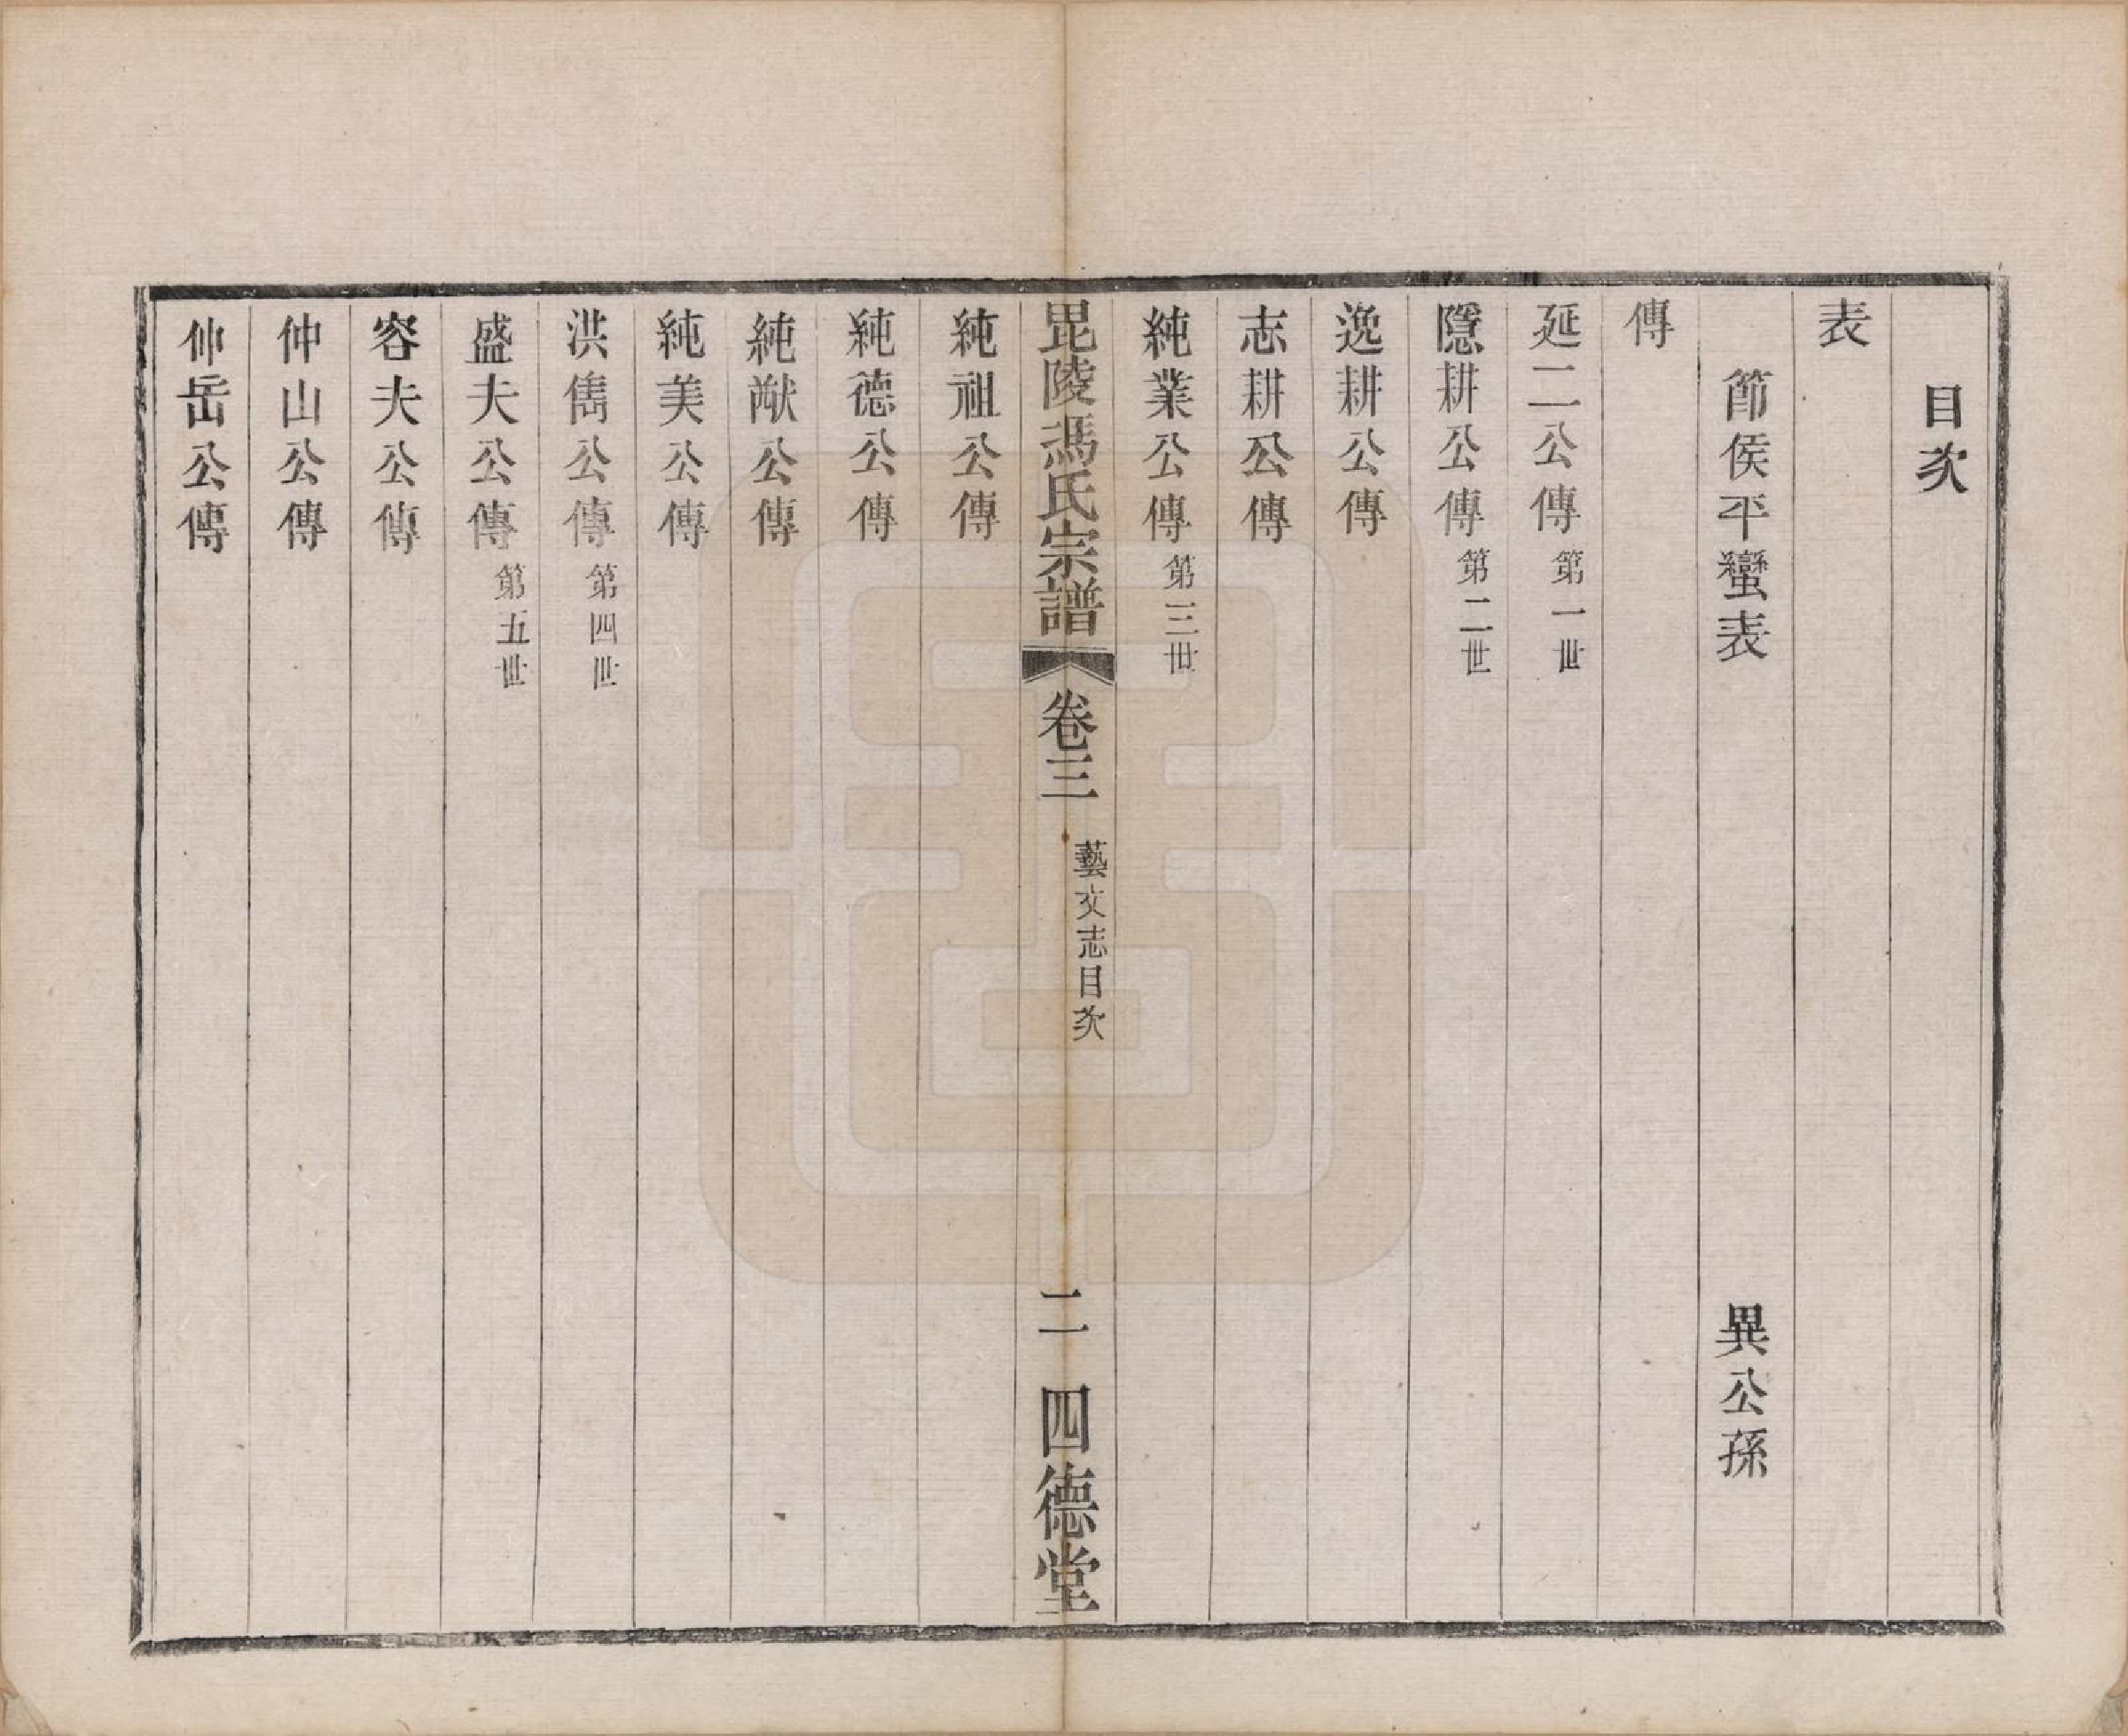 目次
表
節侯平蠻表　異公孫
傳
延二公傳第一世
隱耕公傳第二世
逸耕公傳
志耕公傳
純業公傳第三世
毘陵馮氏宗譜　卷三　藝文志目次　二　四德堂
純祖公傳
純德公傳
純猷公傳
純美公傳
洪儁公傳第四世
盛夫公傳第五世
容夫公傳
仲山公傳
仲岳公傳